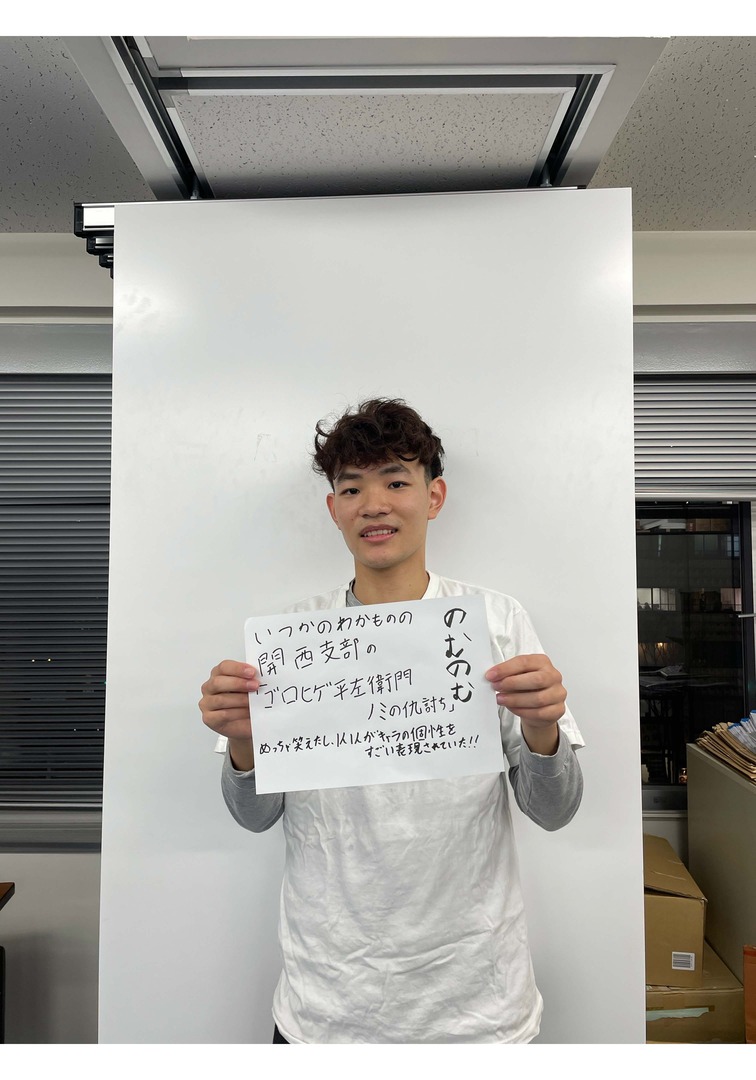 いつかのわかものの
関西支部の
「ゴロヒゲ平左衛門
ノミの仇討ち」
めっちゃ笑えたし、1人1人がキャラの個性を
すごい表現されていた!!
のむのむ